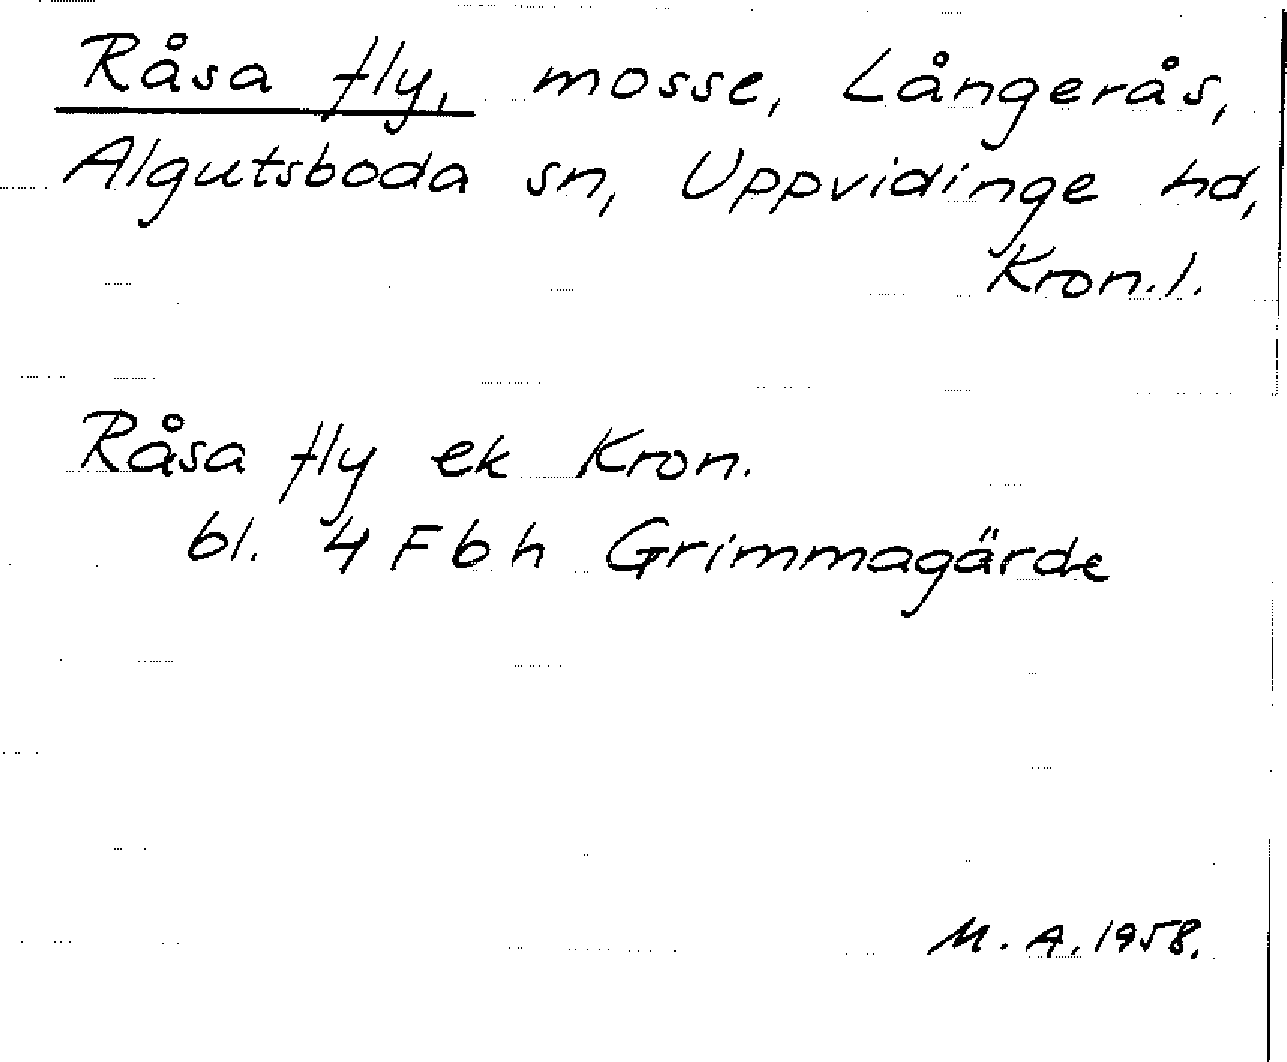 Råsa fly, mosse, Långerås,
Algutsboda sn, Uppvidinge hd,
Kron.l.
Råsa fly ek Kron.
bl. 4 F b h Grimmagärde
M. A. 1958.